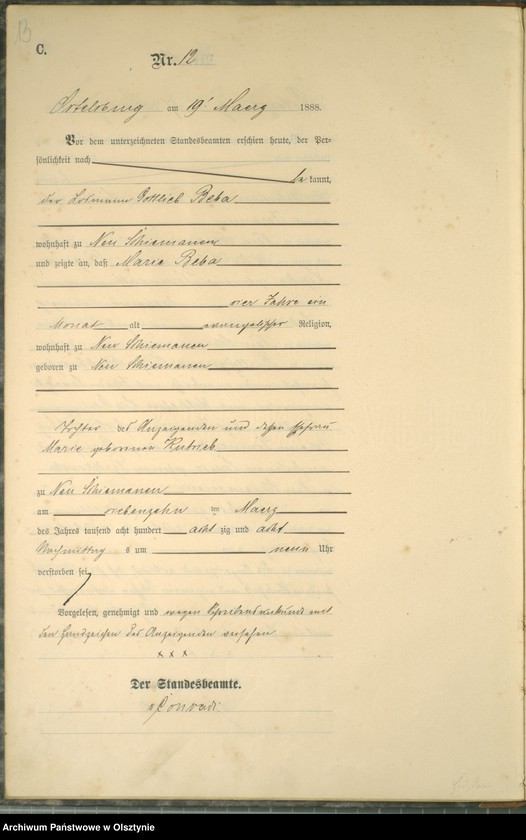 13
C.
Nr. 12
Ortelsburg am 19' Maerz 1888.
Vor dem unterzeichneten Standesbeamten erschien heute, der Per=
sönlichkeit nach
be kannt,
der Losmann Gottlieb Beba
wohnhaft zu Neu Schiemanen
und zeigte an, daß Marie Beba
vier Jahre ein
Monat alt evangelischer Religion,
wohnhaft zu Neu Schiemanen
geboren zu Neu Schiemanen
Tochter des Anzeigenden und dessen Ehefrau
Marie geborenen
zu Neu Schiemanen
am siebenzehn ten Maerz
des Jahres tausend acht hundert acht zig und acht
Nachmittag s um neun Uhr
verstorben sei
Vorgelesen, genehmigt und wegen Schreibensunkunde mit
den Handzeichen des Anzeigenden versehen
x x x
Der Standesbeamte.
v Conradi
Archiwum Państwowe w Olsztynie